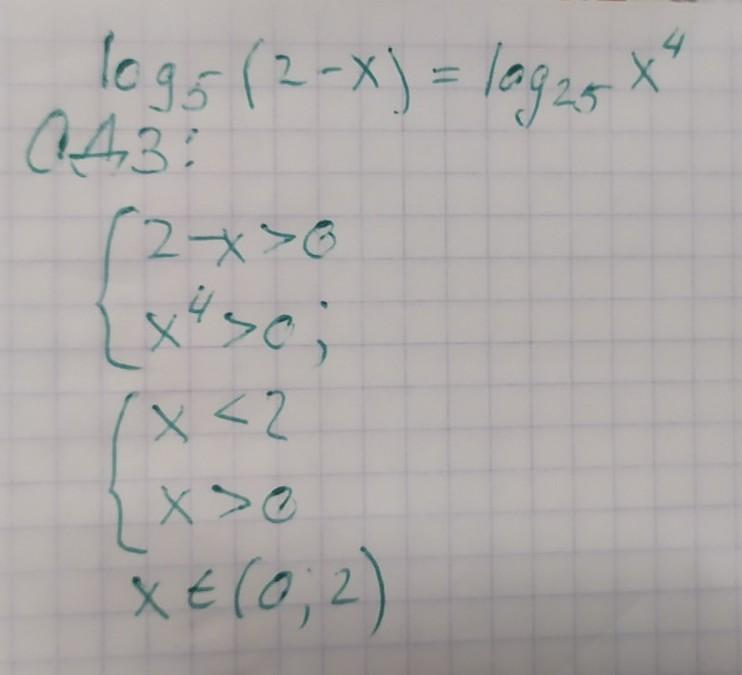 log₅(2-x) = log₂₅ x⁴
ОДЗ:
{ 2-x>0
x⁴>0;
{ x <2
x >0
x ∈ (0; 2)